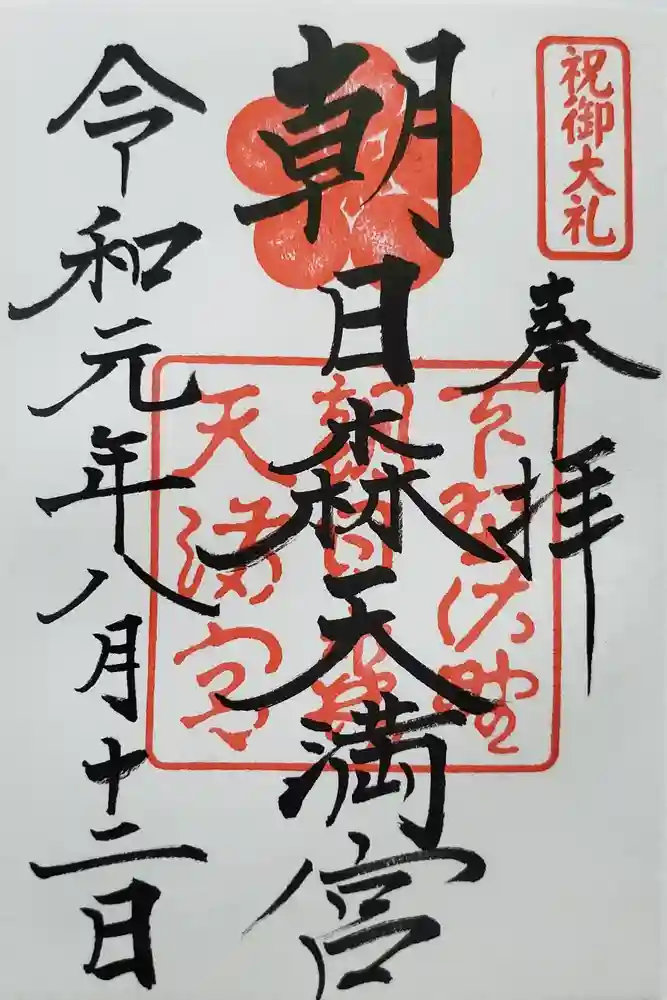 祝御大礼
奉拝
朝日森天満宮
下野佐野
朝日森
天満宮
令和元年八月十二日